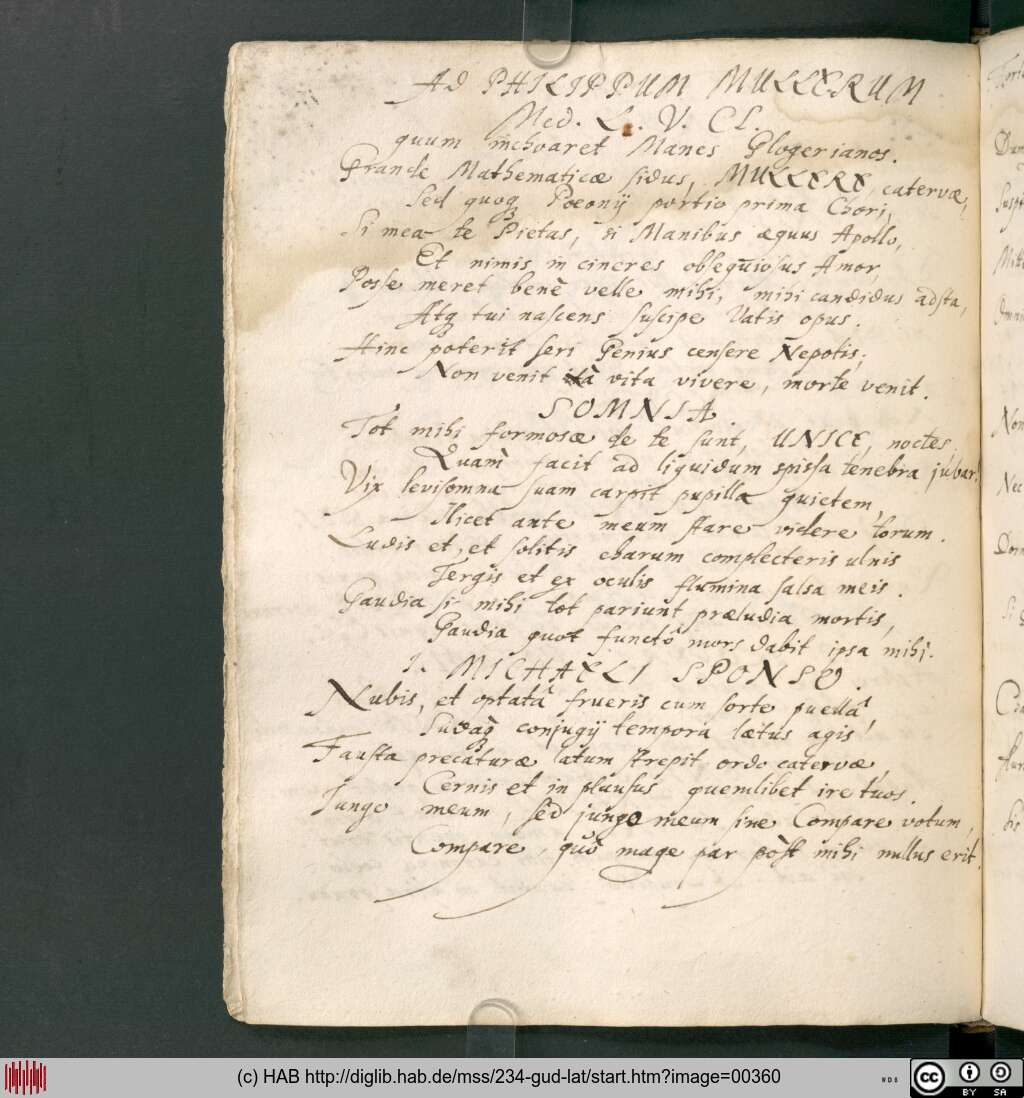 AD PHILIPPUM MULLERUM
Med. L. V. CL.
quum inchoaret Manes Glogerianos.
Grande Mathematicæ sidus, MULLERE, catervæ,
Sed quoq Pœonij portio prima Chori,
Si mea te Pietas, si Manibus æquus Apollo,
Et nimis in cineres obsequiosus Amor,
Posse meret benè velle mihi, mihi candidus adsta,
Atq tui nascens suscipe Vatis opus.
Hinc poterit seri Genius censere Nepotis;
Non venit à vita vivere, morte venit.
SOMNIA.
Tot mihi formosæ de te sunt, UNICE, noctes,
Quàm facit ad liquidum spissa tenebra jubar.
Vix levisomna suam carpit pupilla quietem,
Ilicet ante meum stare videre torum.
Ludis et, et solitis charum complecteris ulnis
Tergis et ex oculis flumina salsa meis.
Gaudia si mihi tot pariunt præludia mortis,
Gaudia quot functo mors dabit ipsa mihi.
I. MICHAELI SPONSO.
Nubis, et optatâ frueris cum sorte puellâ,
Suvaq conjugij tempora lætus agis,
Fausta precaturæ latum strepit ordo catervæ,
Cernis et in plausus quemlibet ire tuos.
Junge meum, sed junge meum sine Compare votum,
Compare, quô mage par pòst mihi nullus erit.
(c) HAB http://diglib.hab.de/mss/234-gud-lat/start.htm?image=00360
cc BY SA